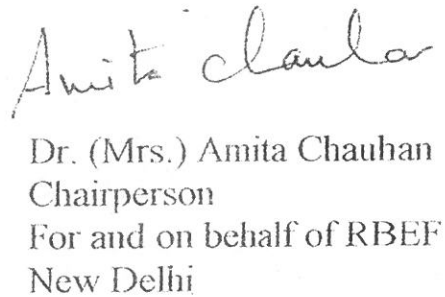 Amita Chauhan
Dr. (Mrs.) Amita Chauhan
Chairperson
For and on behalf of RBEF
New Delhi